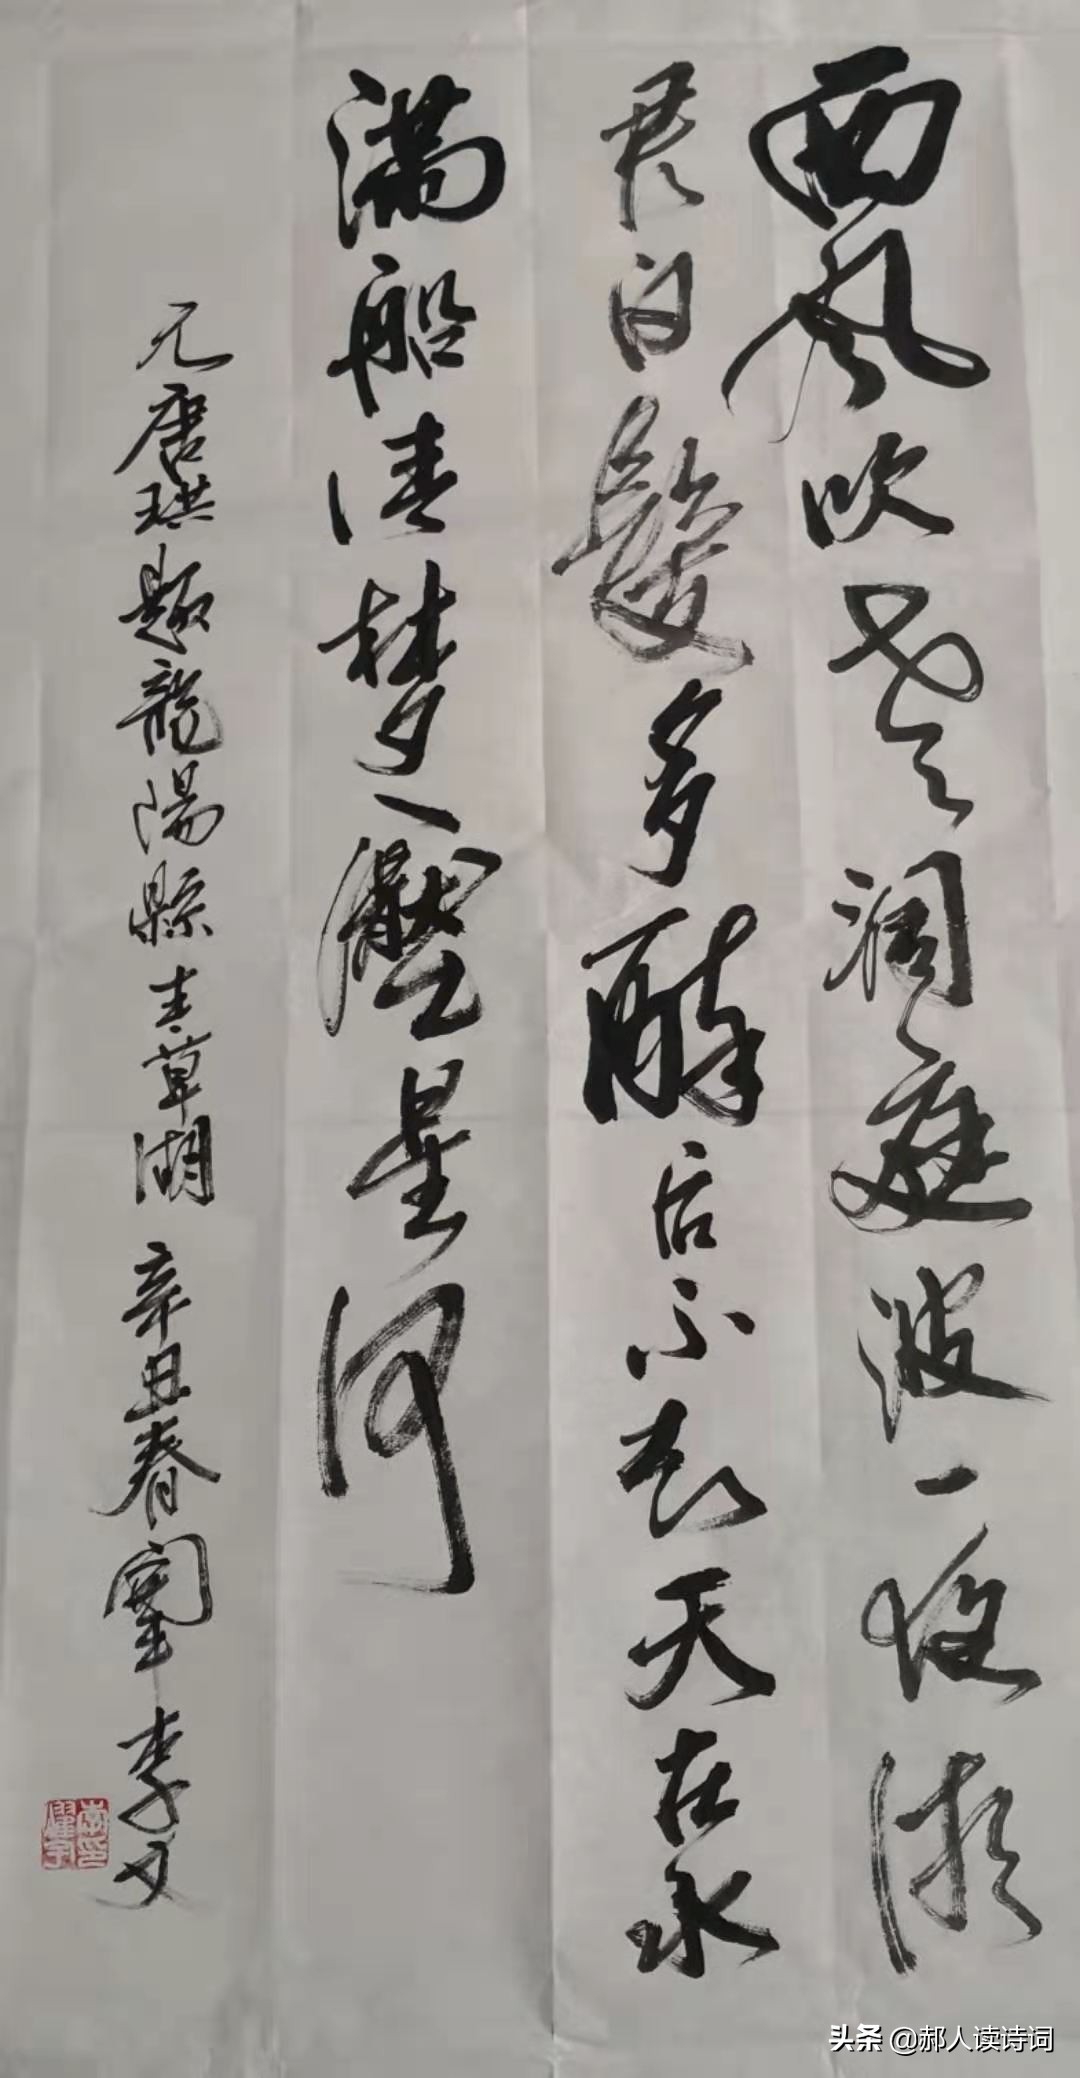 西风吹老洞庭波一夜湘
君白髮多醉后不知天在水
满船清梦壓星河
元唐珙题龍陽縣青草湖 辛丑春 李文
头条 @郝人读诗词